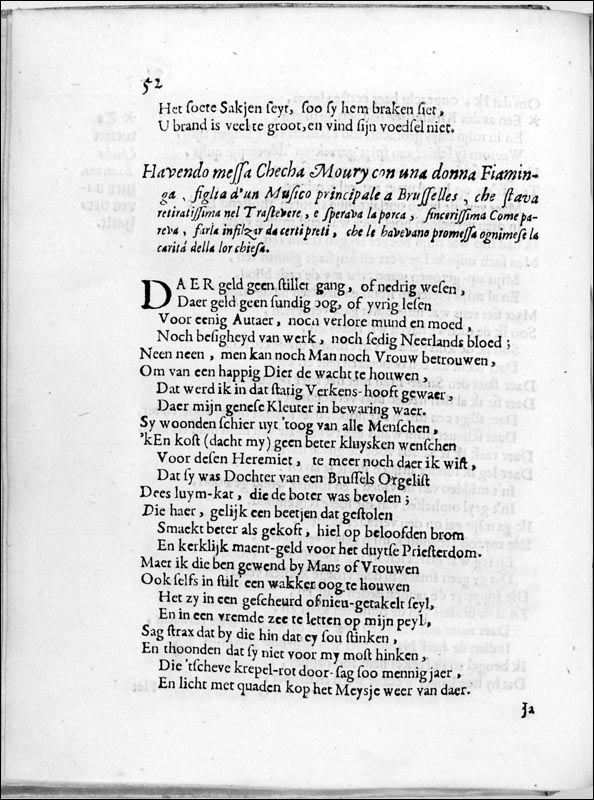 52
Het soete Sakjen seyt, soo sy hem braken siet,
U brand is veel te groot, en vind sijn voedsel niet.
Havendo messa Checha Moury con una donna Fiamin-
ga, figlia d'un Musico principale a Brusselles, che stava
retiratissima nel Trastevere, e sperava la porca, sincerissima Come pa-
reva, farla infilzar da certi preti, che le havevano promessa ogni mese la
carità della lor chiesa.
DAER geld geen stiller gang, of nedrig wesen,
Daer geld geen sundig oog, of yvrig lesen
Voor eenig Autaer, noch verlore mund en moed,
Noch besigheyd van werk, noch sedig Neerlands bloed;
Neen neen, men kan noch Man noch Vrouw betrouwen,
Om van een happig Dier de wacht te houwen,
Dat werd ik in dat statig Verkens-hooft gewaer,
Daer mijn genese Kleuter in bewaring waer.
Sy woonden schier uyt 'toog van alle Menschen,
'kEn kost (dacht my) geen beter kluysken wenschen
Voor desen Heremiet, te meer noch daer ik wist,
Dat sy was Dochter van een Brussels Orgelist
Dees luym-kat, die de boter was bevolen;
Die haer, gelijk een beetjen dat gestolen
Smaekt beter als gekoft, hiel op beloofden brom
En kerklijk maent-geld voor het duytse Priesterdom.
Maer ik die ben gewend by Mans of Vrouwen
Ook selfs in stilt' een wakker oog te houwen
Het zy in een gescheurd of nieu-getakelt seyl,
En in een vremde zee te letten op mijn peyl,
Sag strax dat by die hin dat ey sou stinken,
En thoonden dat sy niet voor my most hinken,
Die 'tscheve krepel-rot door-sag soo mennig jaer,
En licht met quaden kop het Meysje weer van daer.
Ja